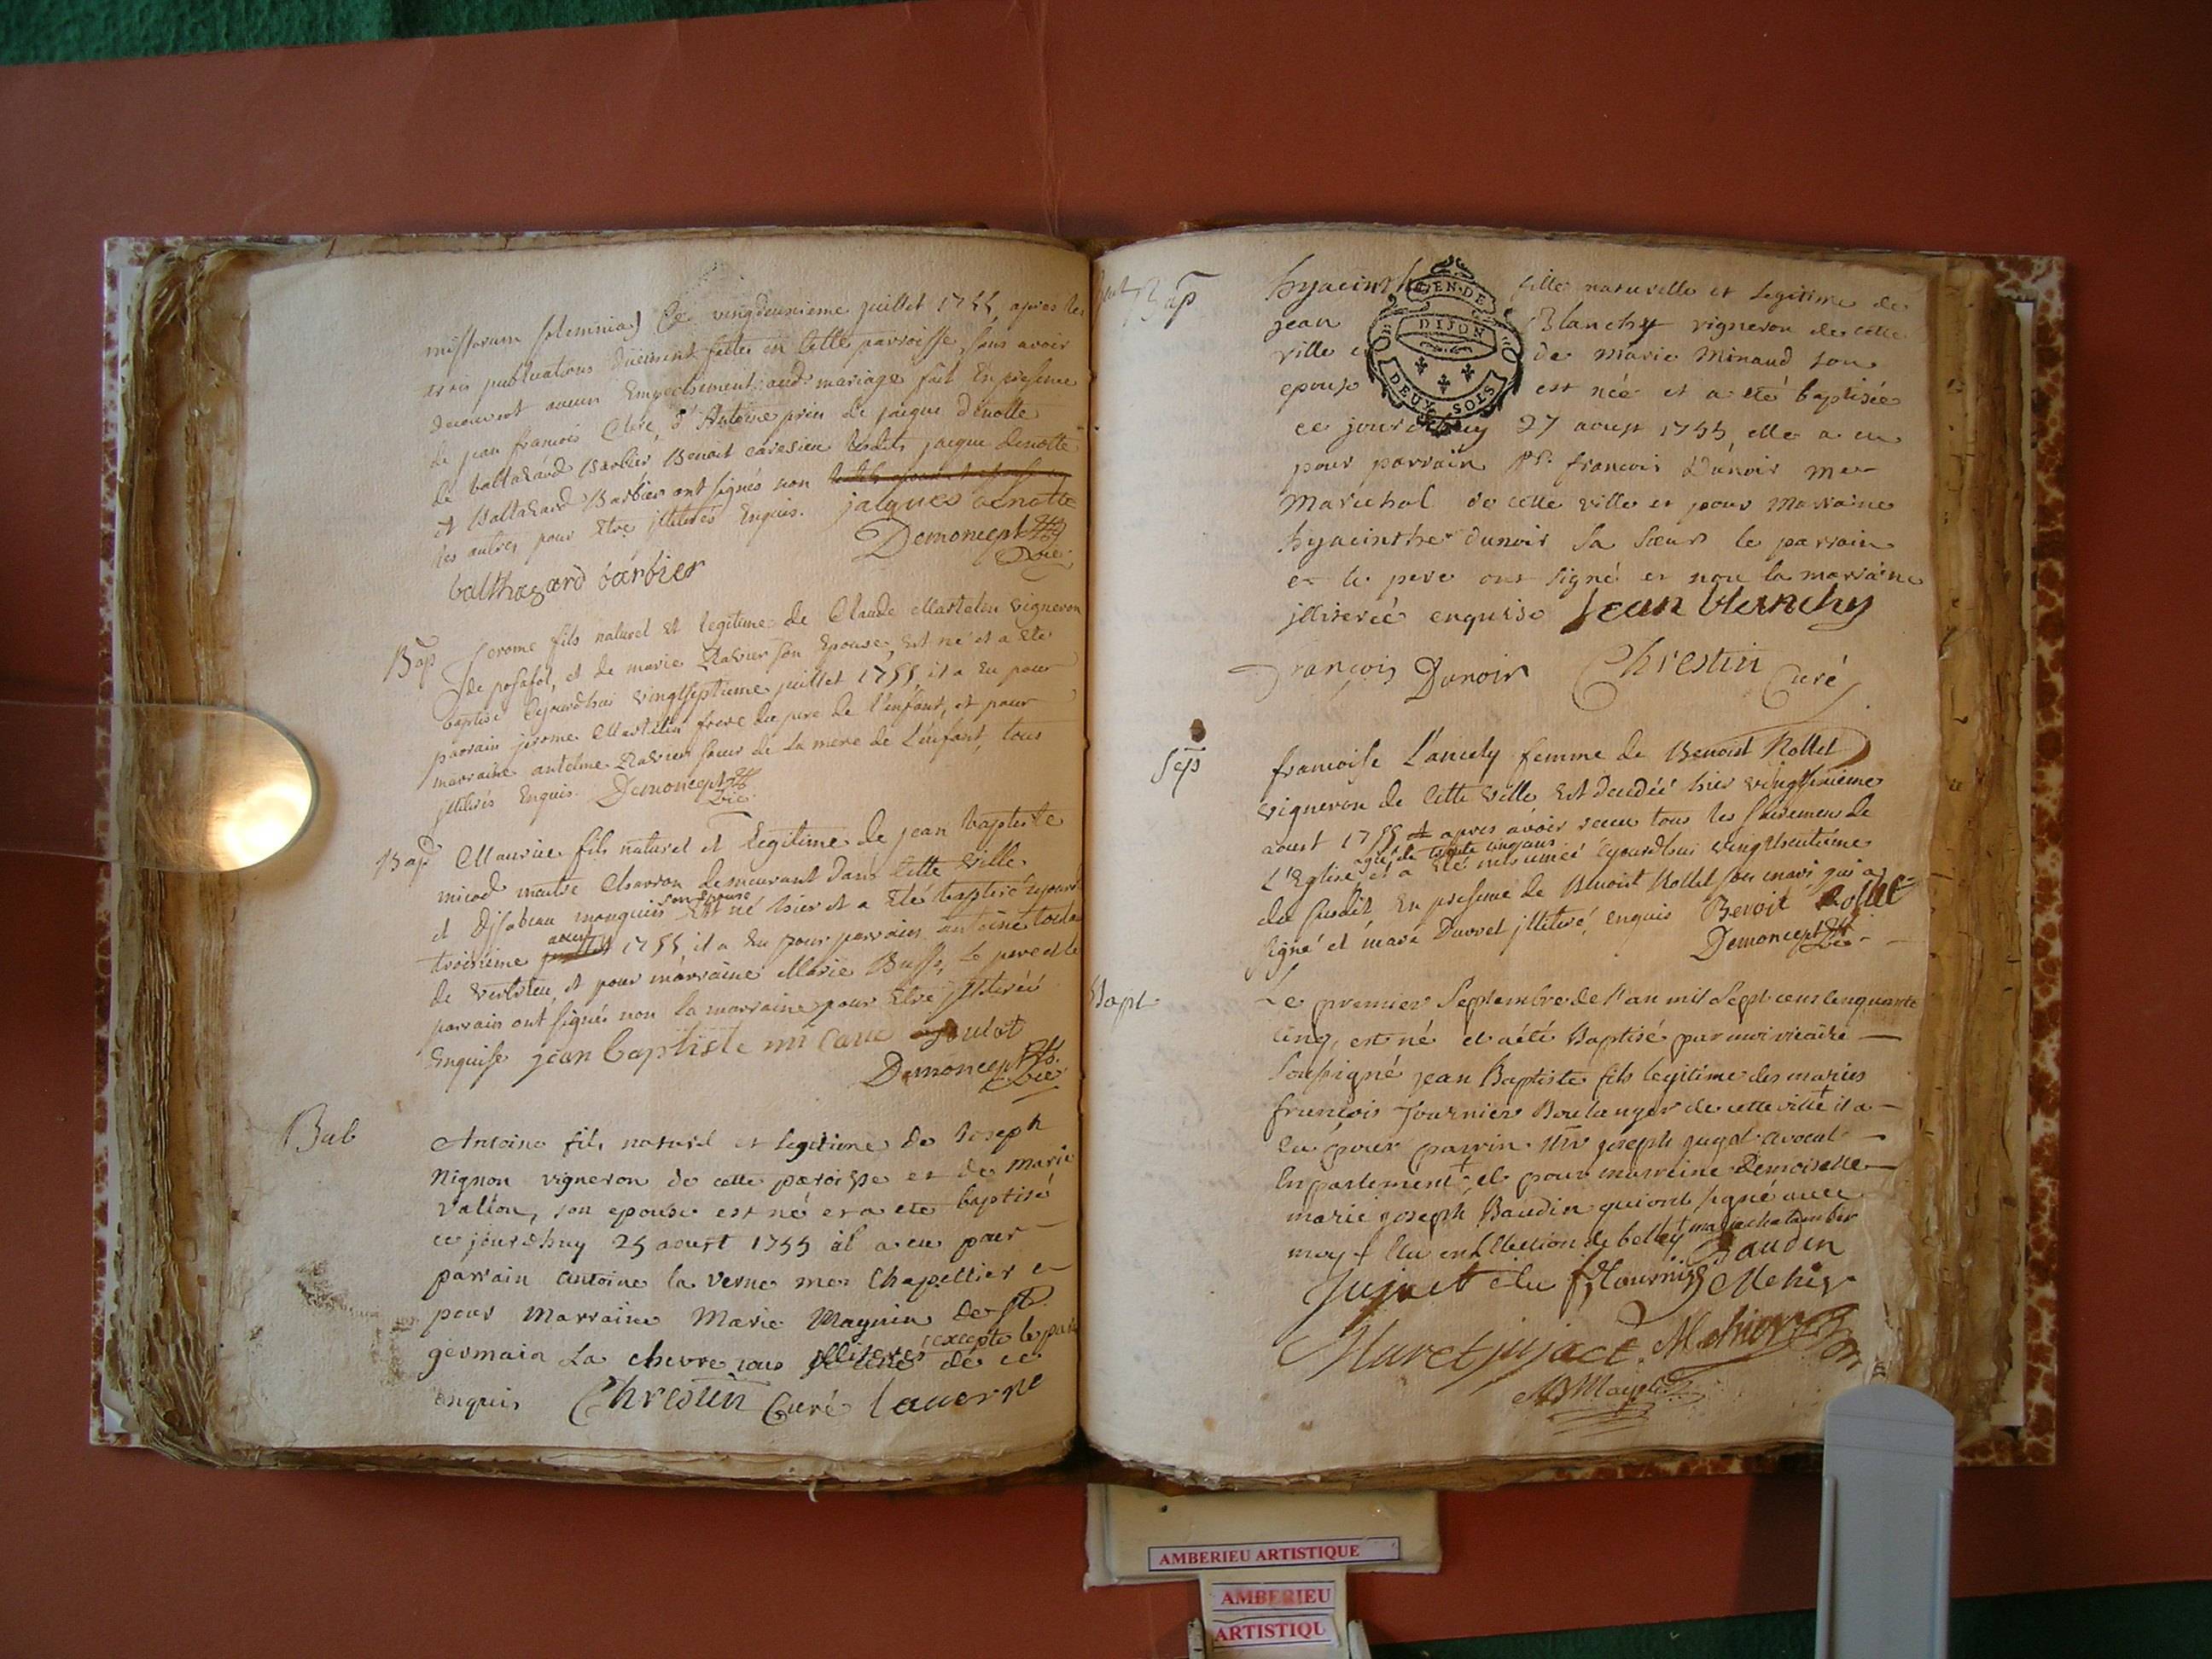 missarum solemnia) Ce vingdeuxieme juillet 1755, apres les
trois publications düement faites en cette parroisse sans avoir
decouvert aucun Empechement aud mariage fait En presence
de jean francois Clerc, d'Antoine prin de jacque denotte
de baltazard Barbier Benoit lesdits jacque denotte
et Baltazard Barbier ont signés non
les autres pour Etre illiterés Enquis. jacques denotte
Demoncept
Vic.
balthazard barbier
Bap Jerome fils naturel et legitime de Claude Martelin vigneron
de posafol, et de marie Ravier son Epouse, Est né et a Eté
baptisé cejourdhui vingtseptieme juillet 1755 il a Eu pour
parrain jerome Martelin frere du pere de l'enfant, et pour
marraine antelme Ravier soeur de la mere de L'enfant, tous
illiterés Enquis. Demoncept
Vic.
Bap Maurice fils naturel et Legitime de jean baptiste
micod maitre Charron demeurant dans Cette ville
son epouse
et Djsabeau monguin Est né hier et a Eté baptisé cejourd
aoust
troisieme juillet 1755, il a Eu pour parrain antoine
de vertrieu, et pour marraine Marie Busse, le pere et le
parrain ont signés non la marraine pour Etre illiterée
Enquise jean baptiste mi
Demoncept
Vic.
Bab
Antoine fils naturel et legitime de Joseph
Nignon vigneron de cette paroisse et de Marie
Vallon, son epouse est né et a ete baptisé
ce jourdhuy 25 aoust 1755 il a eu pour
parrain Antoine la verne mer Chapellier et
pour Marraine Marie Magnin de st
germain La chevre tous illiteres excepté le parr
enquis Chrestin Curé laverne
Bap
hyacinthe fille naturelle et legitime de
GEN·DE
DIJON
DEUX SOLS
jean Blanchy vigneron de cette
ville et de Marie Minaud son
epouse est née et a eté baptisée
ce jourdhuy 27 aoust 1755, elle a eu
pour parrain Sr. francois Dunoir mer
Marichal de cette ville et pour Marraine
hyacinthe dunoir sa soeur le parrain
et le pere ont signé et non la marraine
illiterée enquise Jean blanchy
François Dunoir Chrestin Curé
Sep
francoise Lancely femme de Benoist Rollet
vigneron de Cette ville Est decedée hier vingtseptieme
aoust 1755 apres avoir receu tous les sacremens de
agée de trente un ans
L'Eglise et a Eté inhumée cejourdhui vingthuitieme
du susdit En presence de Benoist Rollet son mari qui a
signé et marc Durret illiteré, enquis Benoit Rollet
Demoncept
Vic.
Bapt
Le premier Septembre de l'an mil sept cens cinquante
cinq, est né et a été Baptisé par moi vicaire
soussigné jean Baptiste fils legitime des maries
françois fournier Boulanger de cette ville† il a
eu pour parrin Mr joseph jujat avocat
En parlement†, et pour marreine Demoiselle
marie joseph Baudin qui ont signé avec
moy † Elu en L'Election de belley † marie chatambier
Baudin
Jujat elu f fournier
Maret jujact